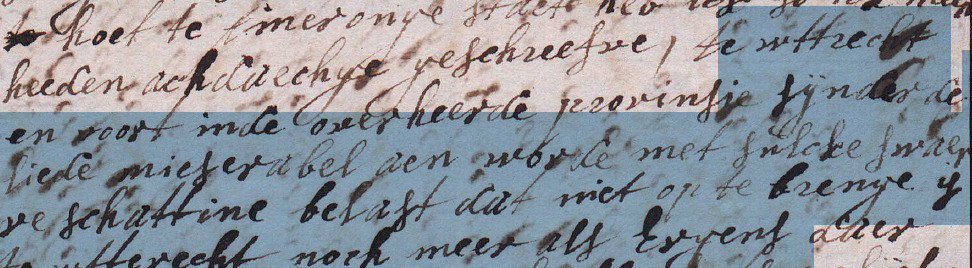 hoet te simeronge staet heb ick
heeden achdaechge geschreefve, te wttrecht
en voort inde overheerde provinsie sijnder de
liede mieserabel aen worde met sulcke swaer
re schattine belast dat niet op te brenge ijs
te wtterecht noch meer als ergens daer